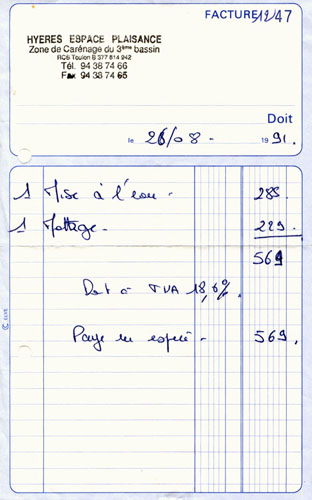 FACTURE 512/47
HYERES ESPACE PLAISANCE
Zone de Carénage du 3ème bassin
RCS Toulon B 377 814 942
Tél. 94 38 74 66
Fax 94 38 74 65
Doit
le 26/08 - 1991.
1 Mise à l'eau - 285.
1 - 229.
569
TVA 18,6%.
Paye en espèce - 569.